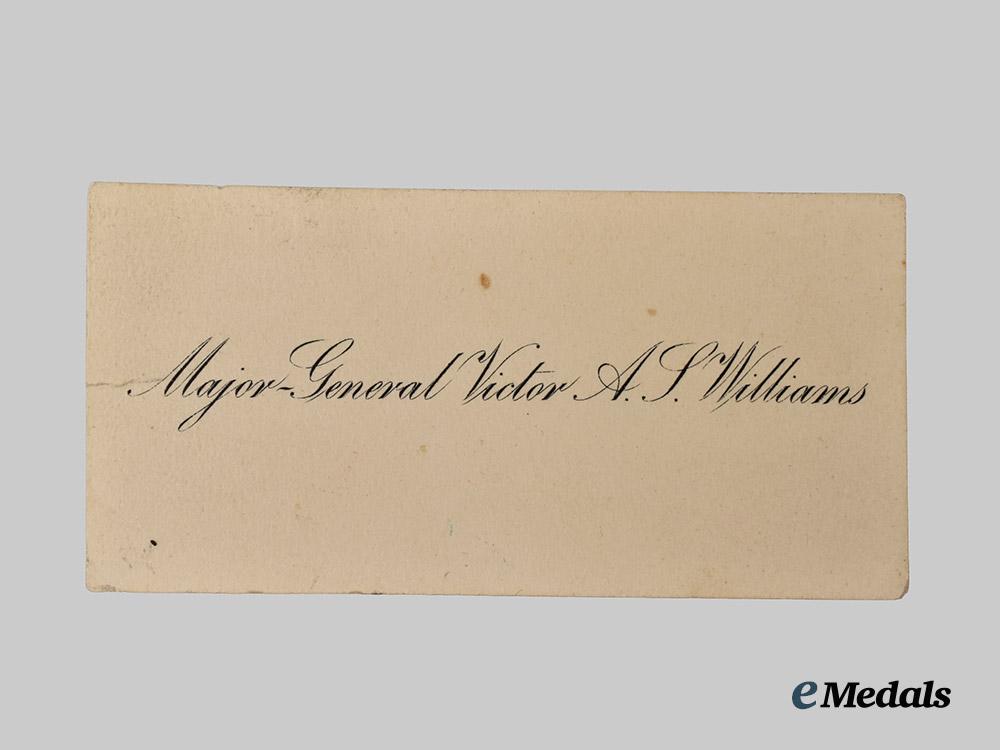 Major-General Victor A. S. Williams
eMedals